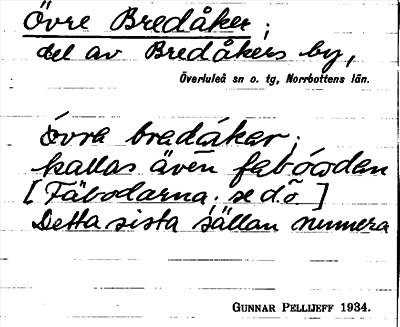 Övre Bredåker;
del av Bredåkers by,
Överluleå sn o. tg, Norrbottens län.
övra bredákar;
kallas även fabówdan
[Fäbodarna, se dõ]
Detta sista sällan numera
GUNNAR PELLIJEFF 1934.